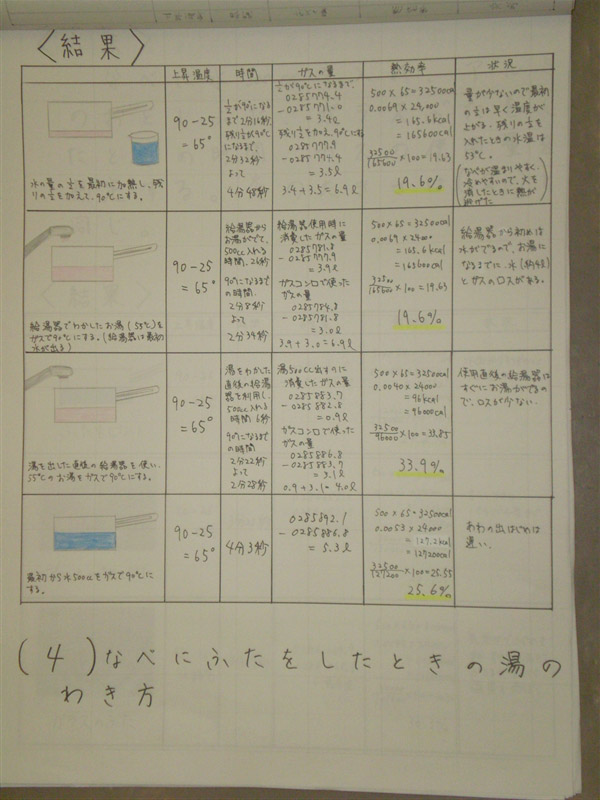 〈結果〉
上昇温度
時間
ガスの量
熱効率
状況
水の量の1/2を最初に加熱し、残
りの1/2を加えて、90℃にする。
90-25
=65°
1/2が90℃になる
まで2分16秒
残り1/2が90℃
になるまで、
2分32秒
よって
4分48秒
1/2が90℃になるまで、
0285774.4
-0285771.0
=3.4ℓ
残り1/2を加え、90℃にする
0285777.9
-0285774.4
=3.5ℓ
3.4+3.5=6.9ℓ
500×65=32500cal
0.0069×24,000
=165.6kcal
=165600cal
32500/165600×100=19.63
19.6%
量が少ないので最初
の1/2は早く温度が
上がる。残りの1/2を
入れたときの水温は
53℃。
(なべが温まりやすく、
冷めやすいので、火を
消したときに熱が
給湯器でわかしたお湯(55℃)を
ガスで90℃にする。(給湯器は最初
水が出る)
90-25
=65°
給湯器から
お湯がでて、
500cc入れる
時間、26秒
90℃になるまで
の時間、
2分8秒
よって
2分34秒
給湯器使用時に
消費したガスの量
0285781.8
-0285777.9
=3.9ℓ
ガスコンロで使った
ガスの量
0285784.8
-0285781.8
=3.0ℓ
3.9+3.0=6.9ℓ
500×65=32500cal
0.0069×2400
=165.6kcal
=165600cal
32500/165600×100=19.63
19.6%
給湯器から初めは
水がでるので、お湯に
なるまでに、水(約4ℓ)
とガスのロスがある。
湯を出した直後の給湯器を使い、
55℃のお湯をガスで90℃にする。
90-25
=65°
湯をわかした
直後の給湯
器を利用し、
500cc入れる
時間、6秒
90℃になるまで
の時間
2分22秒
よって
2分28秒
湯500cc出すのに
消費したガスの量
0285883.7
-0285882.8
=0.9ℓ
ガスコンロで使った
ガスの量
0285886.8
-0285883.7
=3.1ℓ
0.9+3.1=4.0ℓ
500×65=32500cal
0.0040×24000
=96kcal
=96000cal
32500/96000×100=33.85
33.9%
使用直後の給湯器は
すぐにお湯がでるの
で、ロスが少ない。
最初から水500ccをガスで90℃に
する。
90-25
=65°
4分3秒
0285892.1
-0285886.8
=5.3ℓ
500×65=32500cal
0.0053×24000
=127.2kcal
=127200cal
32500/127200×100=25.55
25.6%
あわの出はじめは
遅い。
(4)なべにふたをしたときの湯の
わき方